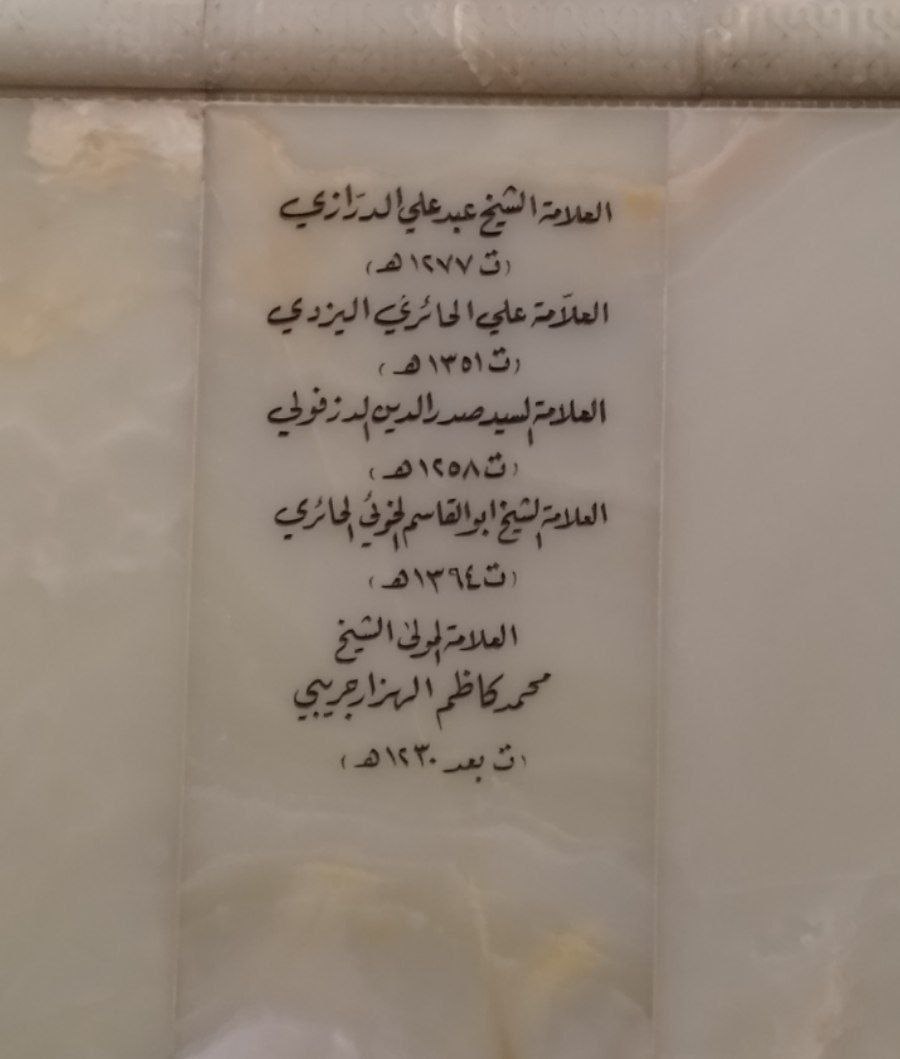 العلامة الشيخ عبد علي الدرازي
(ت ١٢٧٧هـ)
العلّامة علي الحائري اليزدي
(ت ١٣٥١هـ)
العلامة السيد صدر الدين الدزفولي
(ت ١٢٥٨هـ)
العلامة الشيخ ابو القاسم الخوئي الحائري
(ت ١٣٦٤هـ)
العلامة المولى الشيخ
محمد كاظم الهزارجريبي
(ت بعد ١٢٣٠هـ)